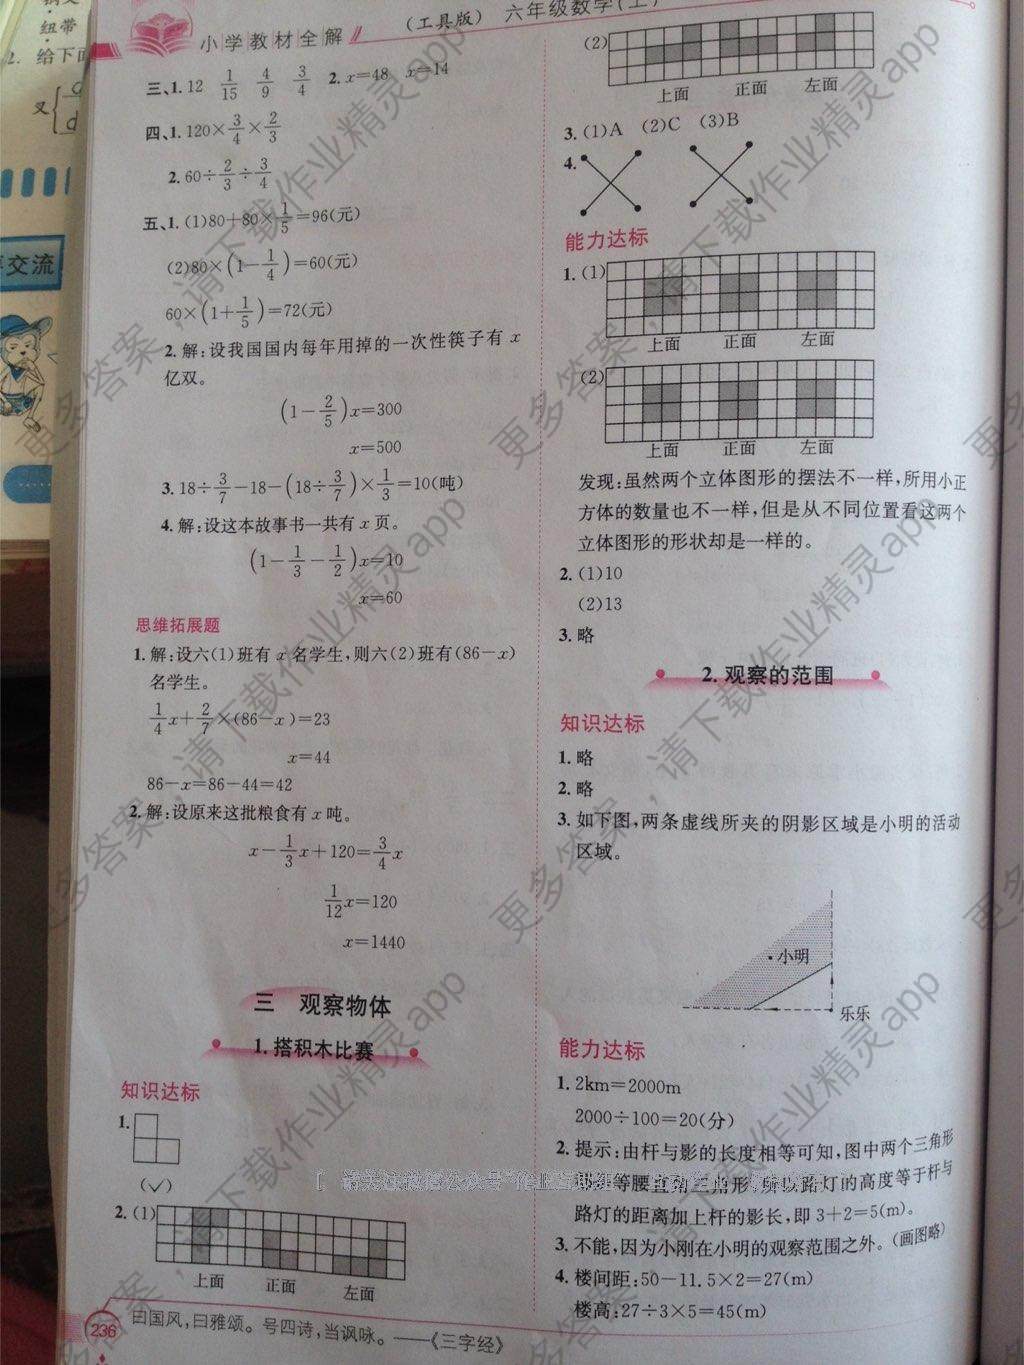 纽带
2. 给下面
叉
d
享交流
小学教材全解
(工具版) 六年级数学(上)
三、1. 12 1/15 4/9 3/4 2. x=48 x=14
四、1. 120×3/4×2/3
2. 60÷2/3÷3/4
五、1. (1)80+80×1/5=96(元)
(2)80×(1-1/4)=60(元)
60×(1+1/5)=72(元)
2. 解:设我国国内每年用掉的一次性筷子有 x
亿双。
(1-2/5)x=300
x=500
3. 18÷3/7-18-(18÷3/7)×1/3=10(吨)
4. 解:设这本故事书一共有 x 页。
(1-1/3-1/2)x=10
x=60
思维拓展题
1. 解:设六(1)班有 x 名学生,则六(2)班有(86-x)
名学生。
1/4x+2/7×(86-x)=23
x=44
86-x=86-44=42
2. 解:设原来这批粮食有 x 吨。
x-1/3x+120=3/4x
1/12x=120
x=1440
三 观察物体
1. 搭积木比赛
知识达标
1.
(✓)
2. (1)
上面 正面 左面
(2)
上面 正面 左面
3. (1)A (2)C (3)B
4.
能力达标
1. (1)
上面 正面 左面
(2)
上面 正面 左面
发现:虽然两个立体图形的摆法不一样,所用小正
方体的数量也不一样,但是从不同位置看这两个
立体图形的形状却是一样的。
2. (1)10
(2)13
3. 略
2. 观察的范围
知识达标
1. 略
2. 略
3. 如下图,两条虚线所夹的阴影区域是小明的活动
区域。
小明
乐乐
能力达标
1. 2km=2000m
2000÷100=20(分)
2. 提示:由杆与影的长度相等可知,图中两个三角形
等腰直角三角形,所以路灯的高度等于杆与
路灯的距离加上杆的影长,即 3+2=5(m)。
3. 不能,因为小刚在小明的观察范围之外。(画图略)
4. 楼间距:50-11.5×2=27(m)
楼高:27÷3×5=45(m)
236
曰国风,曰雅颂。号四诗,当讽咏。——《三字经》
更多答案，请下载作业精灵app
更多答案，请下载作业精灵app
更多答案，请下载作业精灵app
更多答案，请下载作业精灵app